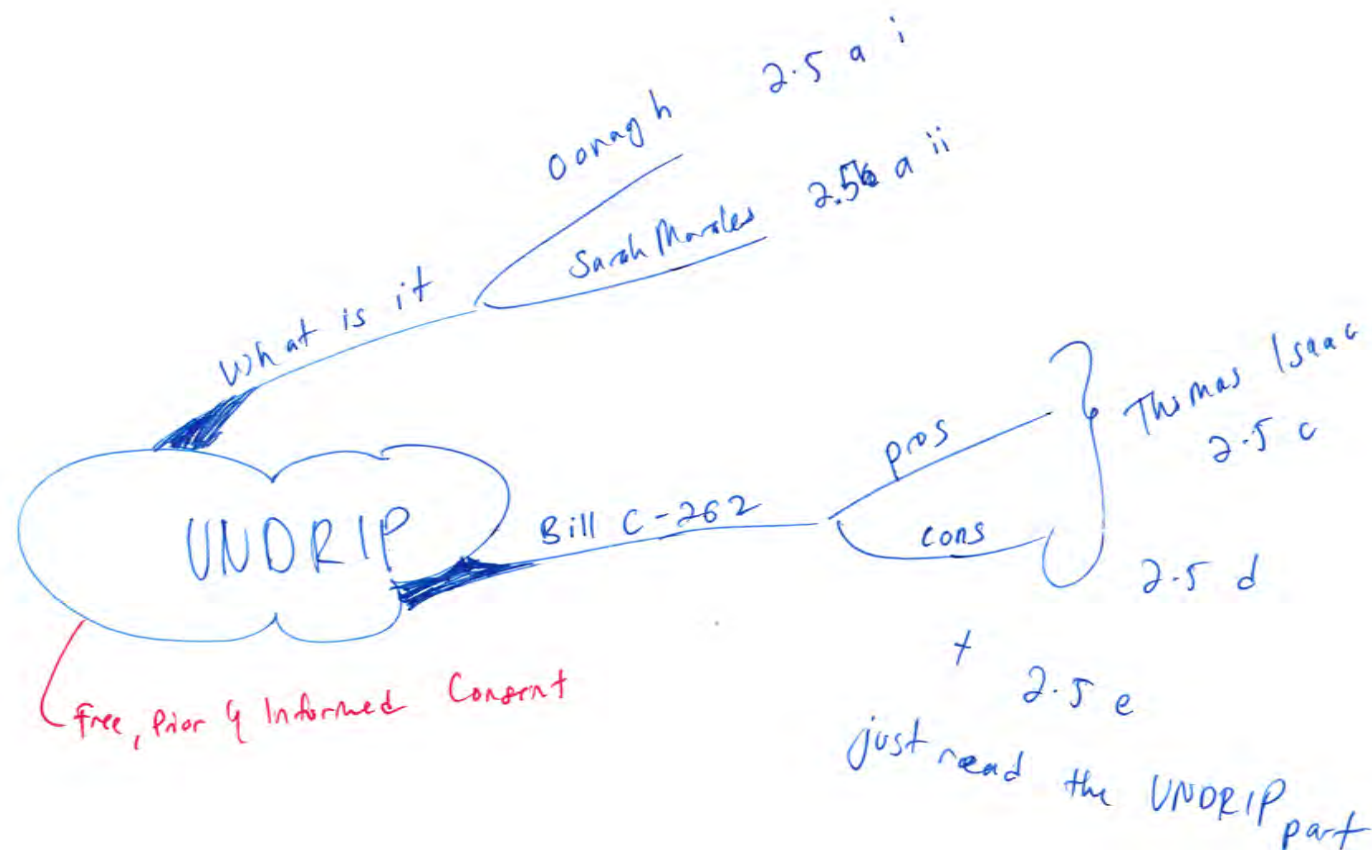 What is it
Oonagh 2.5 a i
Sarah Morales 2.5 a ii
UNDRIP
Bill C-262
pros
cons
Thomas Isaac
2.5 c
2.5 d
+ 2.5 e
just read the UNDRIP part
Free, Prior & Informed Consent